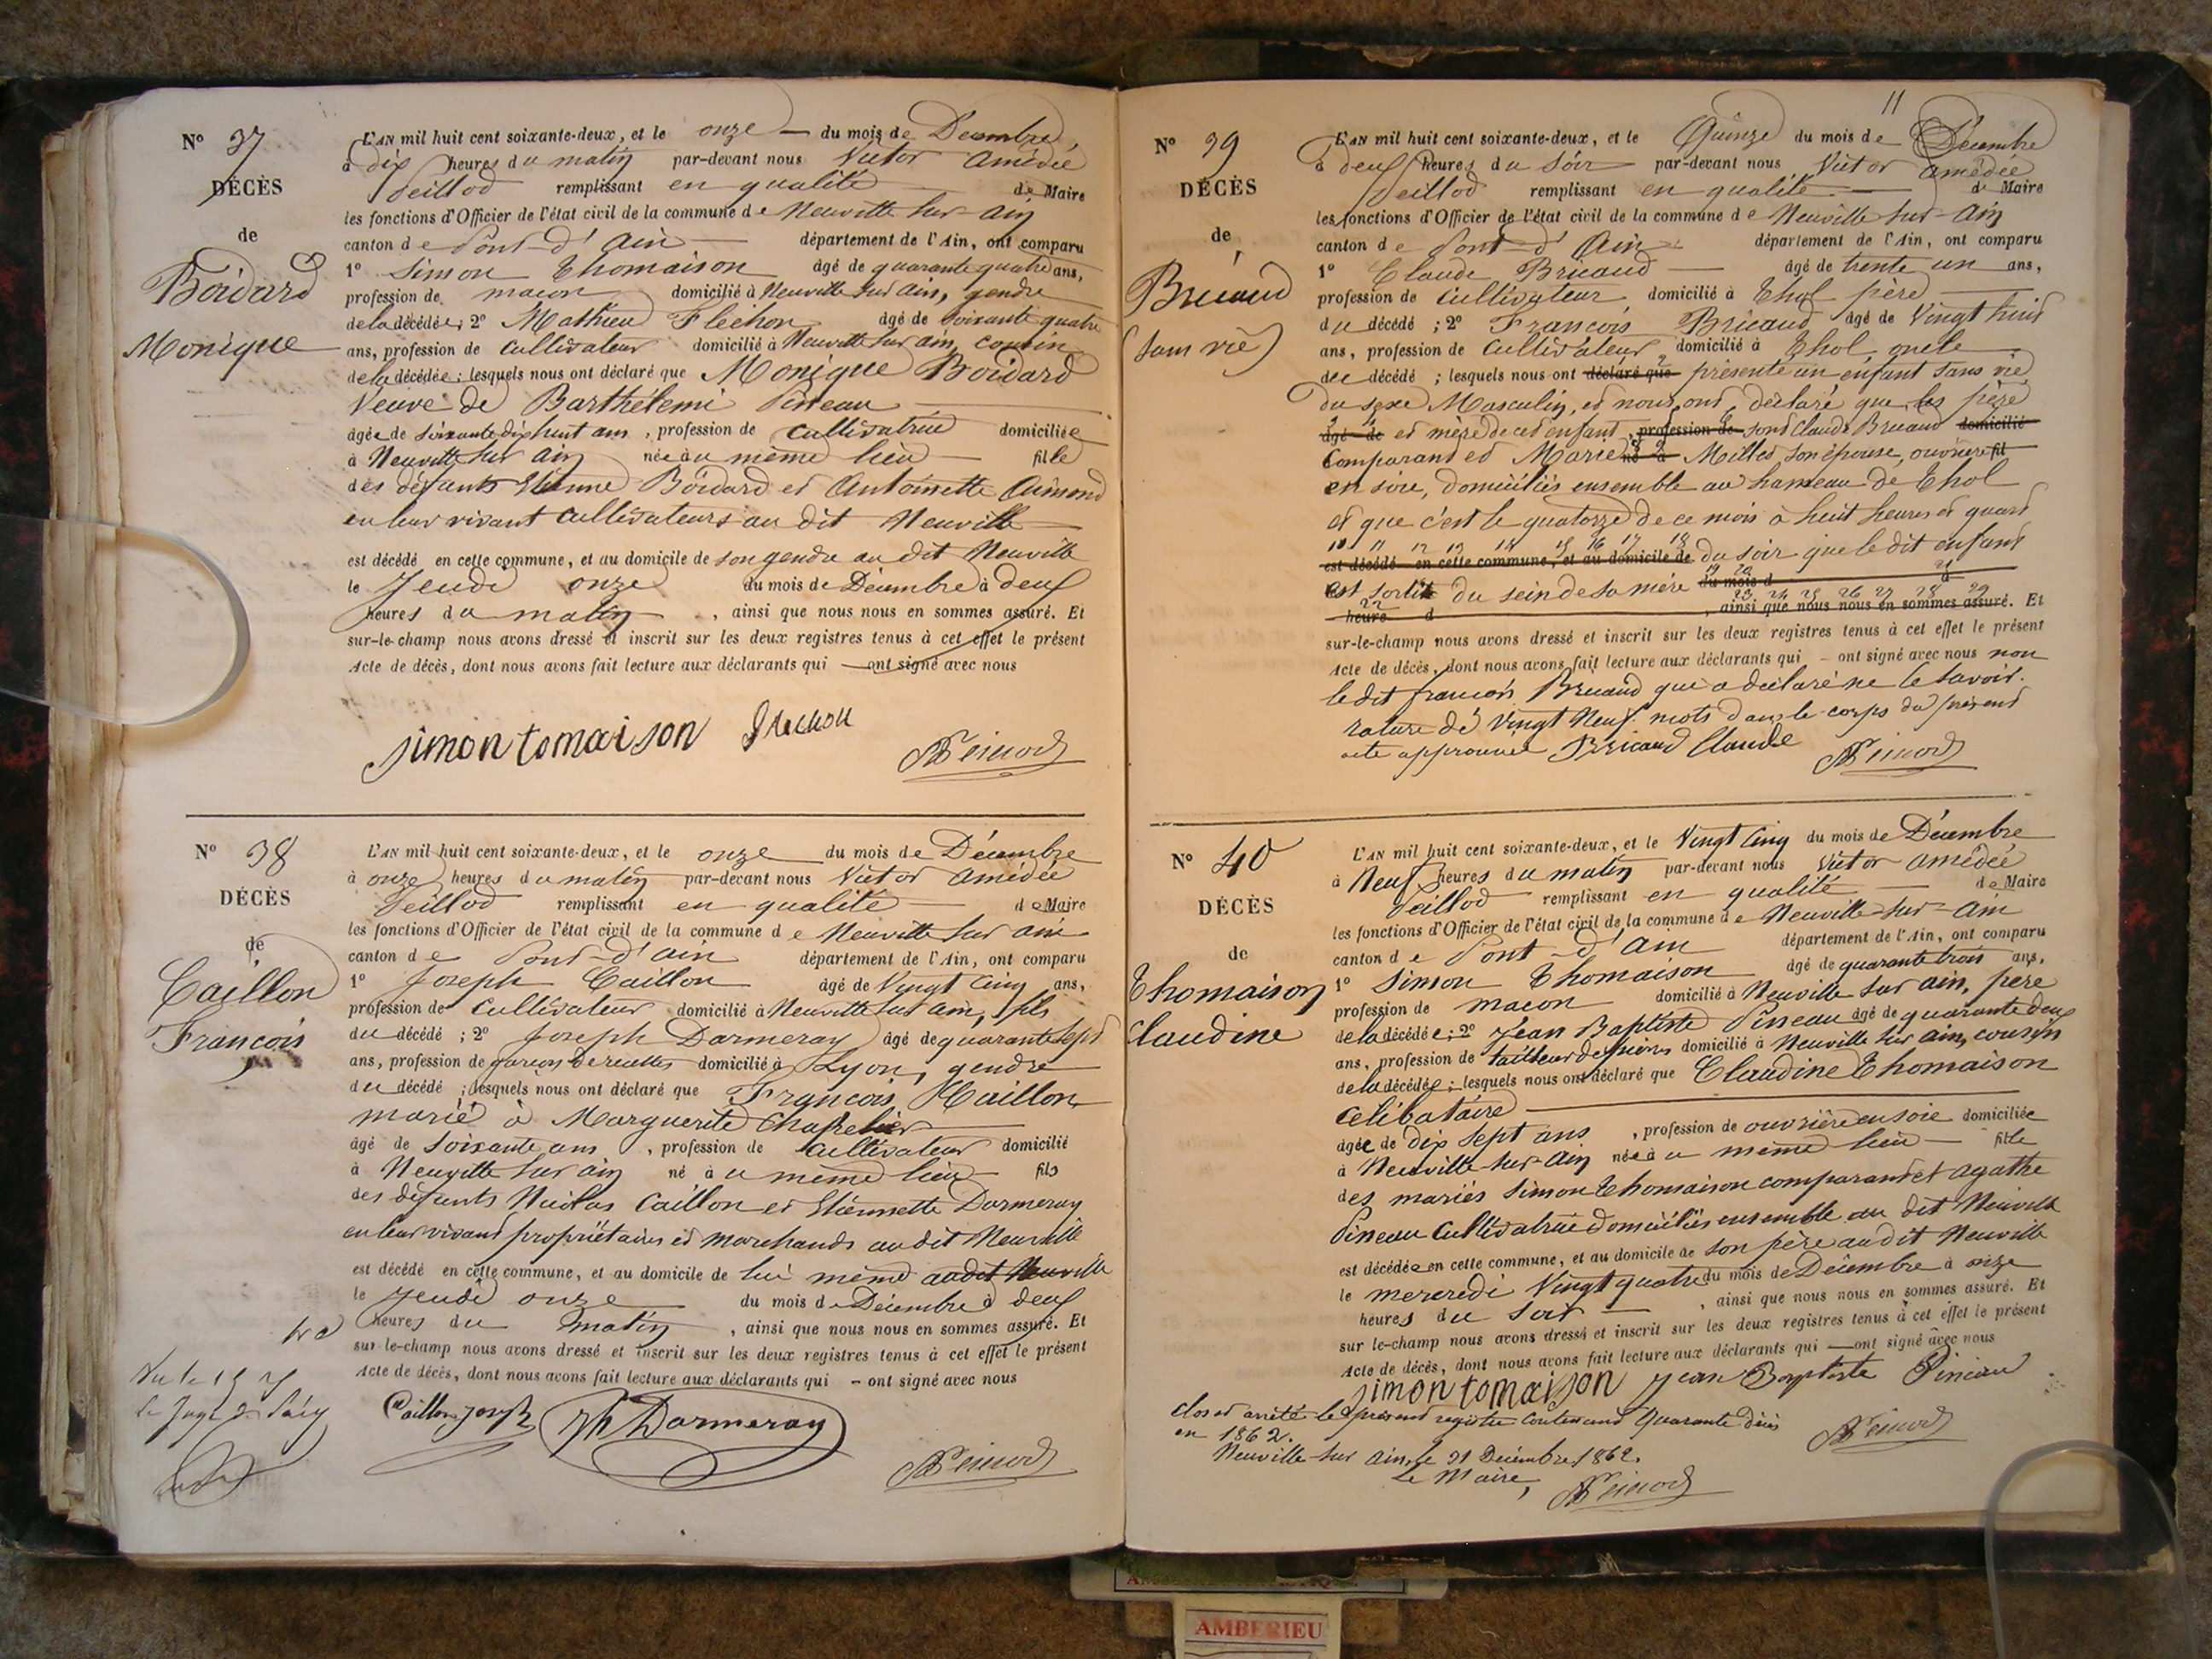 N° 37
DÉCÈS
de
Boidard
Monique
L'AN mil huit cent soixante-deux, et le onze du mois de Décembre
à dix heures du matin par-devant nous Victor Amédée
remplissant en qualité de Maire
les fonctions d'Officier de l'état civil de la commune de Neuville sur Ain
canton de Pont-d'Ain département de l'Ain, ont comparu
1° Simon Thomaison âgé de quarante quatre ans,
profession de maçon domicilié à Neuville sur Ain, gendre
de la décédée; 2° Mathieu Flechon âgé de soixante quatre
ans, profession de cultivateur domicilié à Neuville sur ain, cousin
de la décédée; lesquels nous ont déclaré que Monique Boidard
Veuve de Barthélemi Pineau
âgée de soixante dix huit ans, profession de cultivatrice domiciliée
à Neuville sur Ain née au même lieu fille
des défunts Etienne Boidard et Antoinette
en leur vivant cultivateurs au dit Neuville
est décédé en cette commune, et au domicile de son gendre au dit Neuville
le Jeudi onze du mois de Décembre à deux
heures du matin, ainsi que nous nous en sommes assuré. Et
sur-le-champ nous avons dressé et inscrit sur les deux registres tenus à cet effet le présent
Acte de décès, dont nous avons fait lecture aux déclarants qui ont signé avec nous
simon tomaison Flechon
N° 38
DÉCÈS
de
Caillon
François
L'AN mil huit cent soixante-deux, et le onze du mois de Décembre
à onze heures du matin par-devant nous Victor Amédée
remplissant en qualité de Maire
les fonctions d'Officier de l'état civil de la commune de Neuville sur ain
canton de Pont-d'ain département de l'Ain, ont comparu
1° Joseph Caillon âgé de Vingt cinq ans,
profession de cultivateur domicilié à Neuville sur ain, fils
du décédé; 2° Joseph Darmeray âgé de quarante sept
ans, profession de garçon de recettes domicilié à Lyon, gendre
du décédé; lesquels nous ont déclaré que François Caillon
marié à Marguerite Chapelier
âgé de soixante ans, profession de cultivateur domicilié
à Neuville sur ain né au même lieu fils
des défunts Nicolas Caillon et Etiennette Darmeray
en leur vivant propriétaires et marchands audit Neuville
est décédé en cette commune, et au domicile de lui même audit Neuville
le Jeudi onze du mois de Décembre à deux
heures du matin, ainsi que nous nous en sommes assuré. Et
sur-le-champ nous avons dressé et inscrit sur les deux registres tenus à cet effet le présent
Acte de décès, dont nous avons fait lecture aux déclarants qui – ont signé avec nous
Caillon Joseph Jh Darmeray
11
N° 39
DÉCÈS
de
Bricaud
(sans vie)
L'AN mil huit cent soixante-deux, et le Quinze du mois de Décembre
à deux heures du soir par-devant nous Victor amédée
remplissant en qualité de Maire
les fonctions d'Officier de l'état civil de la commune de Neuville-sur-Ain
canton de Pont-d'Ain département de l'Ain, ont comparu
1° Claude Bricaud âgé de trente un ans,
profession de cultivateur domicilié à Thol père
du décédé; 2° François Bricaud âgé de Vingt huit
ans, profession de cultivateur domicilié à Thol oncle
du décédé; lesquels nous ont déclaré que présenté un enfant sans vie
du sexe Masculin, et nous ont déclaré que les père
âgé de et mère de cet enfant, profession de sont Claude Bricaud domicilié
comparant et Marie né à Millet son épouse, ouvrière fil
en soie, domiciliés ensemble au hameau de Thol
et que c'est le quatorze de ce mois à huit heures et quart
10 11 12 13 14 15 16 17 18
est décédé en cette commune, et au domicile de du soir que le dit enfant
est sortit du sein de sa mère du mois d à
heure d, ainsi que nous nous en sommes assuré. Et
sur-le-champ nous avons dressé et inscrit sur les deux registres tenus à cet effet le présent
Acte de décès, dont nous avons fait lecture aux déclarants qui – ont signé avec nous non
le dit françois Bricaud qui a déclaré ne le savoir.
rature de Vingt Neuf mots dans le corps du présent
acte approuvée Bricaud Claude
N° 40
DÉCÈS
de
Thomaison
Claudine
L'AN mil huit cent soixante-deux, et le Vingt cinq du mois de Décembre
à Neuf heures du matin par-devant nous Victor amédée
remplissant en qualité de Maire
les fonctions d'Officier de l'état civil de la commune de Neuville-sur-Ain
canton de Pont-d'ain département de l'Ain, ont comparu
1° Simon Thomaison âgé de quarante trois ans,
profession de maçon domicilié à Neuville sur ain, père
de la décédée; 2° Jean Baptiste Pineau âgé de quarante deux
ans, profession de tailleur de pierres domicilié à Neuville sur ain, cousin
de la décédée; lesquels nous ont déclaré que Claudine Thomaison
célibataire
âgée de dix sept ans, profession de ouvrière en soie domiciliée
à Neuville-sur-Ain née au même lieu fille
des mariés Simon Thomaison comparant et agathe
Pineau cultivatrice domiciliés ensemble au dit Neuville
est décédée en cette commune, et au domicile de son père audit Neuville
le mercredi Vingt quatre du mois de Décembre à onze
heures du soir, ainsi que nous nous en sommes assuré. Et
sur le-champ nous avons dressé et inscrit sur les deux registres tenus à cet effet le présent
Acte de décès, dont nous avons fait lecture aux déclarants qui ont signé avec nous
simon tomaison jean Baptiste Pineau
Clos et arrêté le présent registre contenant Quarante décès
en 1862.
Neuville sur Ain, le 31 Décembre 1862.
Le Maire,
AMBERIEU